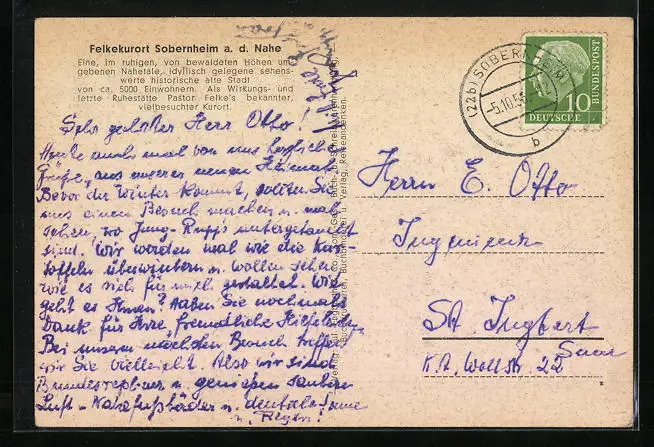 Felkekurort Sobernheim a. d. Nahe
Eine, im ruhigen, von bewaldeten Höhen um-
gebenen Nahetale, idyllisch gelegene sehens-
werte historische alte Stadt
von ca. 5000 Einwohnern. Als Wirkungs- und
letzte Ruhestätte Pastor Felke's bekannter,
vielbesuchter Kurort.
Sehr geehrter Herr Otto!
Heute noch mal von uns herzliche
Grüße, aus unserer neuen Heimat.
Bevor der Winter kommt, sollten Sie
uns einen Besuch machen u. mal
sehen, wo Jung-Rupps untergetaucht
sind. Wir werden mal wie die Kar-
toffeln überwintern u. wollen sehen
wie es sich für mich gestaltet. Wie
geht es Ihnen? Haben Sie nochmals
Dank für Ihre, freundliche
Bei unserem nächsten Besuch treffen
wir Sie vielleicht. Also wir sind
Bundesrepbl u. genießen saubere
Luft - u. deutsche
u. Regen!
(22b) SOBERNHEIM
-5.10.56
b
DEUTSCHE
BUNDESPOST
10
Herrn E. Otto
Ingenieur
St. Ingbert
Saar
22